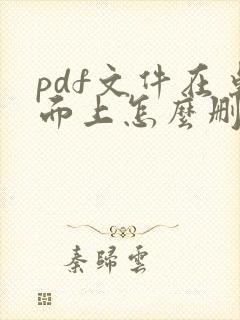 pdf文件在桌
面上怎麼刪
秦歸雲